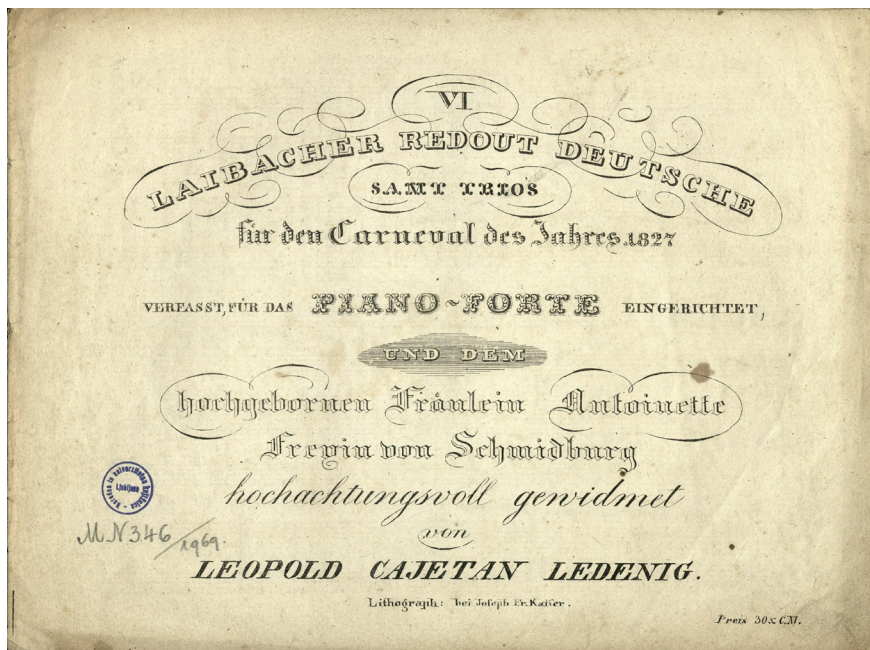 VI
LAIBACHER REDOUT DEUTSCHE
SAMT TRIOS
für den Carneval des Jahres 1827
VERFASST, FÜR DAS PIANO~FORTE EINGERICHTET,
UND DEM
hochgebornen Fräulein Antoinette
Freyin von Schmidburg
hochachtungsvoll gewidmet
von
LEOPOLD CAJETAN LEDENIG.
Lithograph: bei Joseph Fr. Kaiser.
Preis 30x C.M.
Narodna in univerzitetna knjižnica
Ljubljana
MN 346/1969.